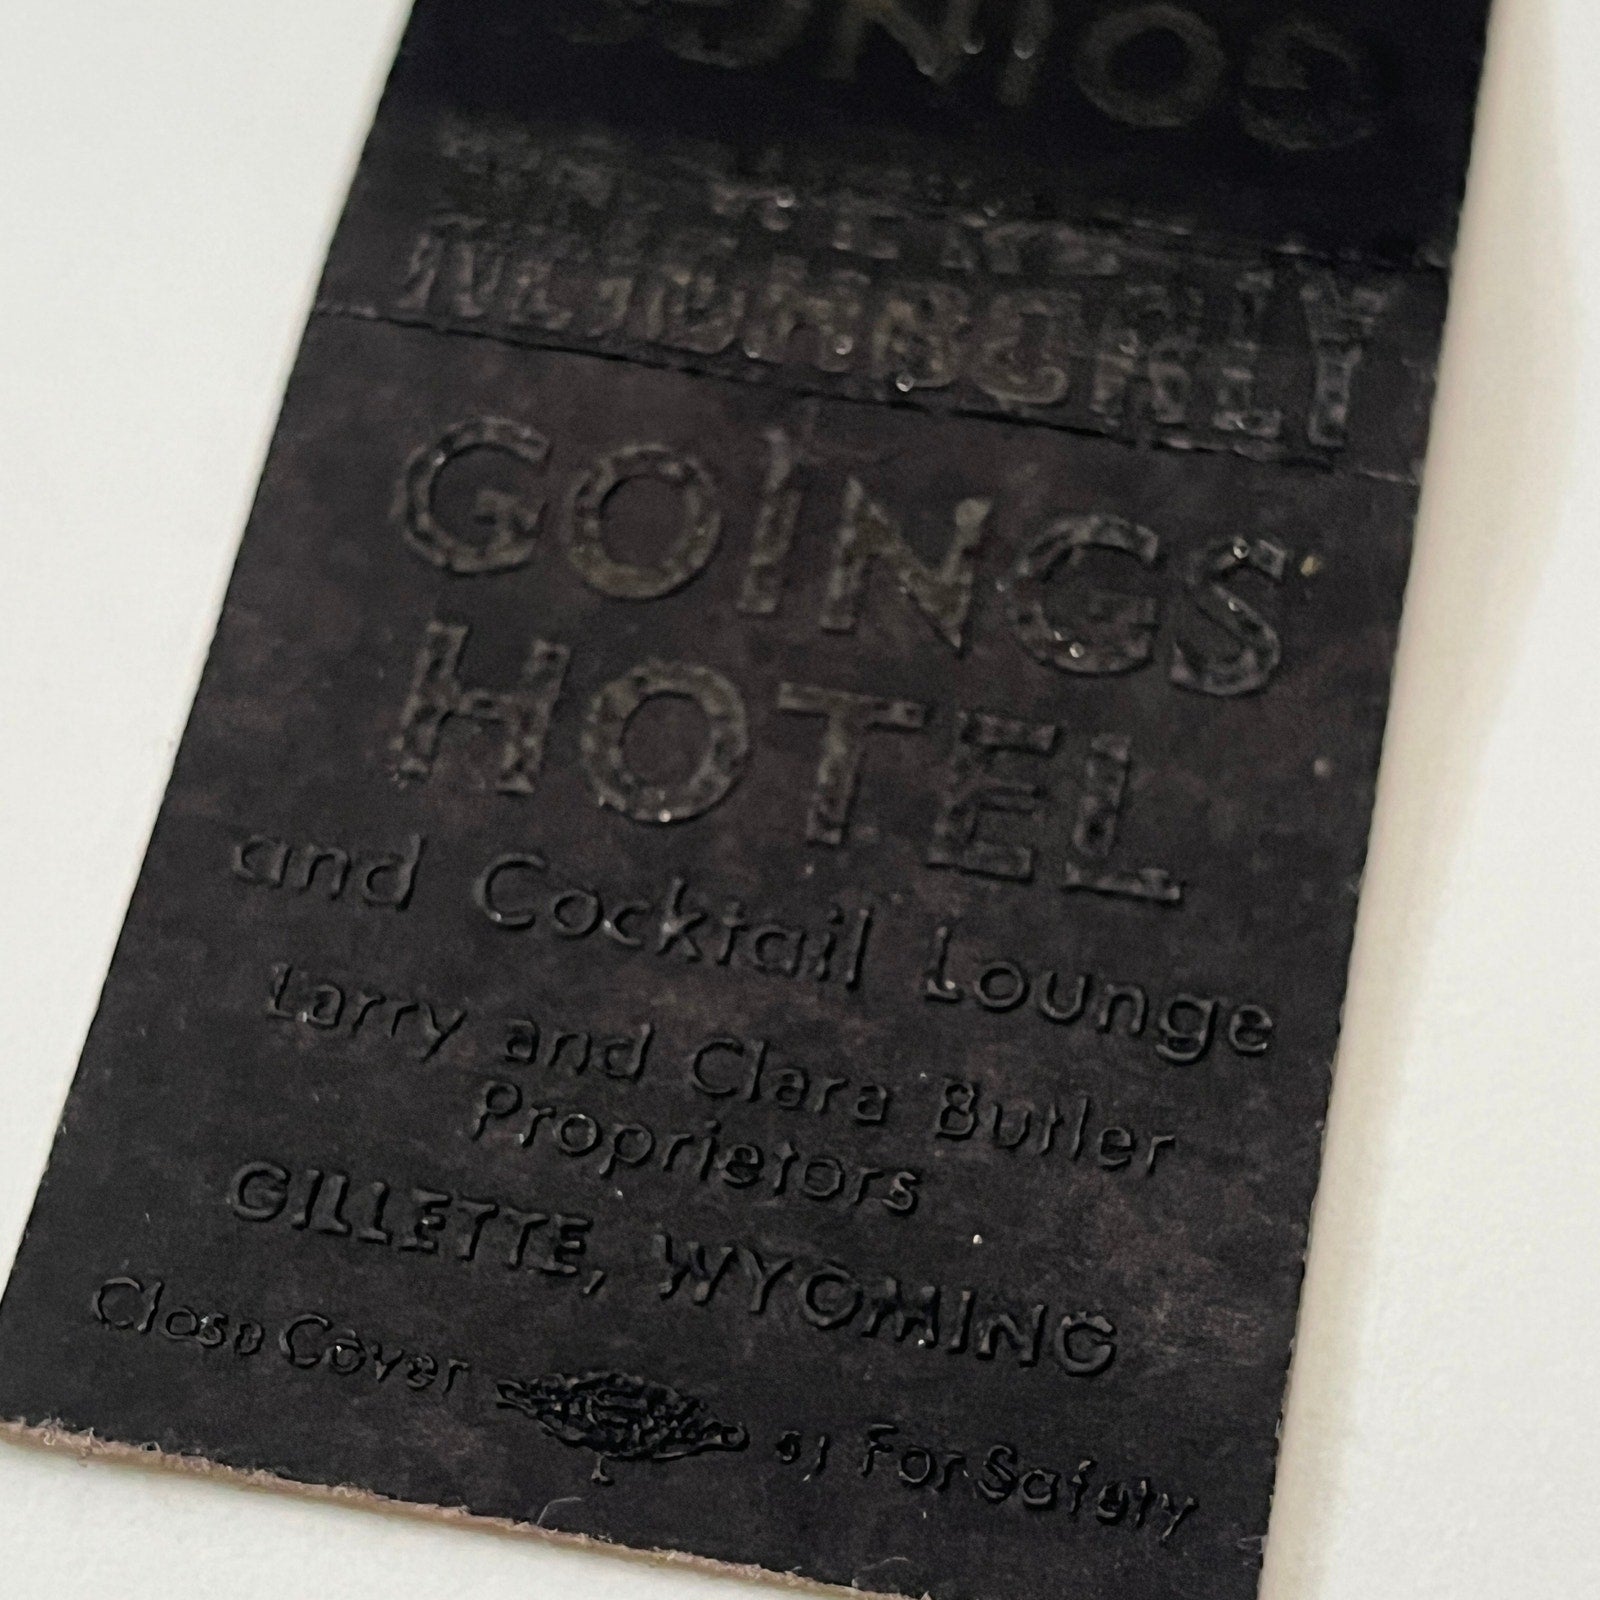 GOINGS
NEIGHBORLY
GOINGS
HOTEL
and Cocktail Lounge
Larry and Clara Butler
Proprietors
GILLETTE, WYOMING
Close Cover For Safety